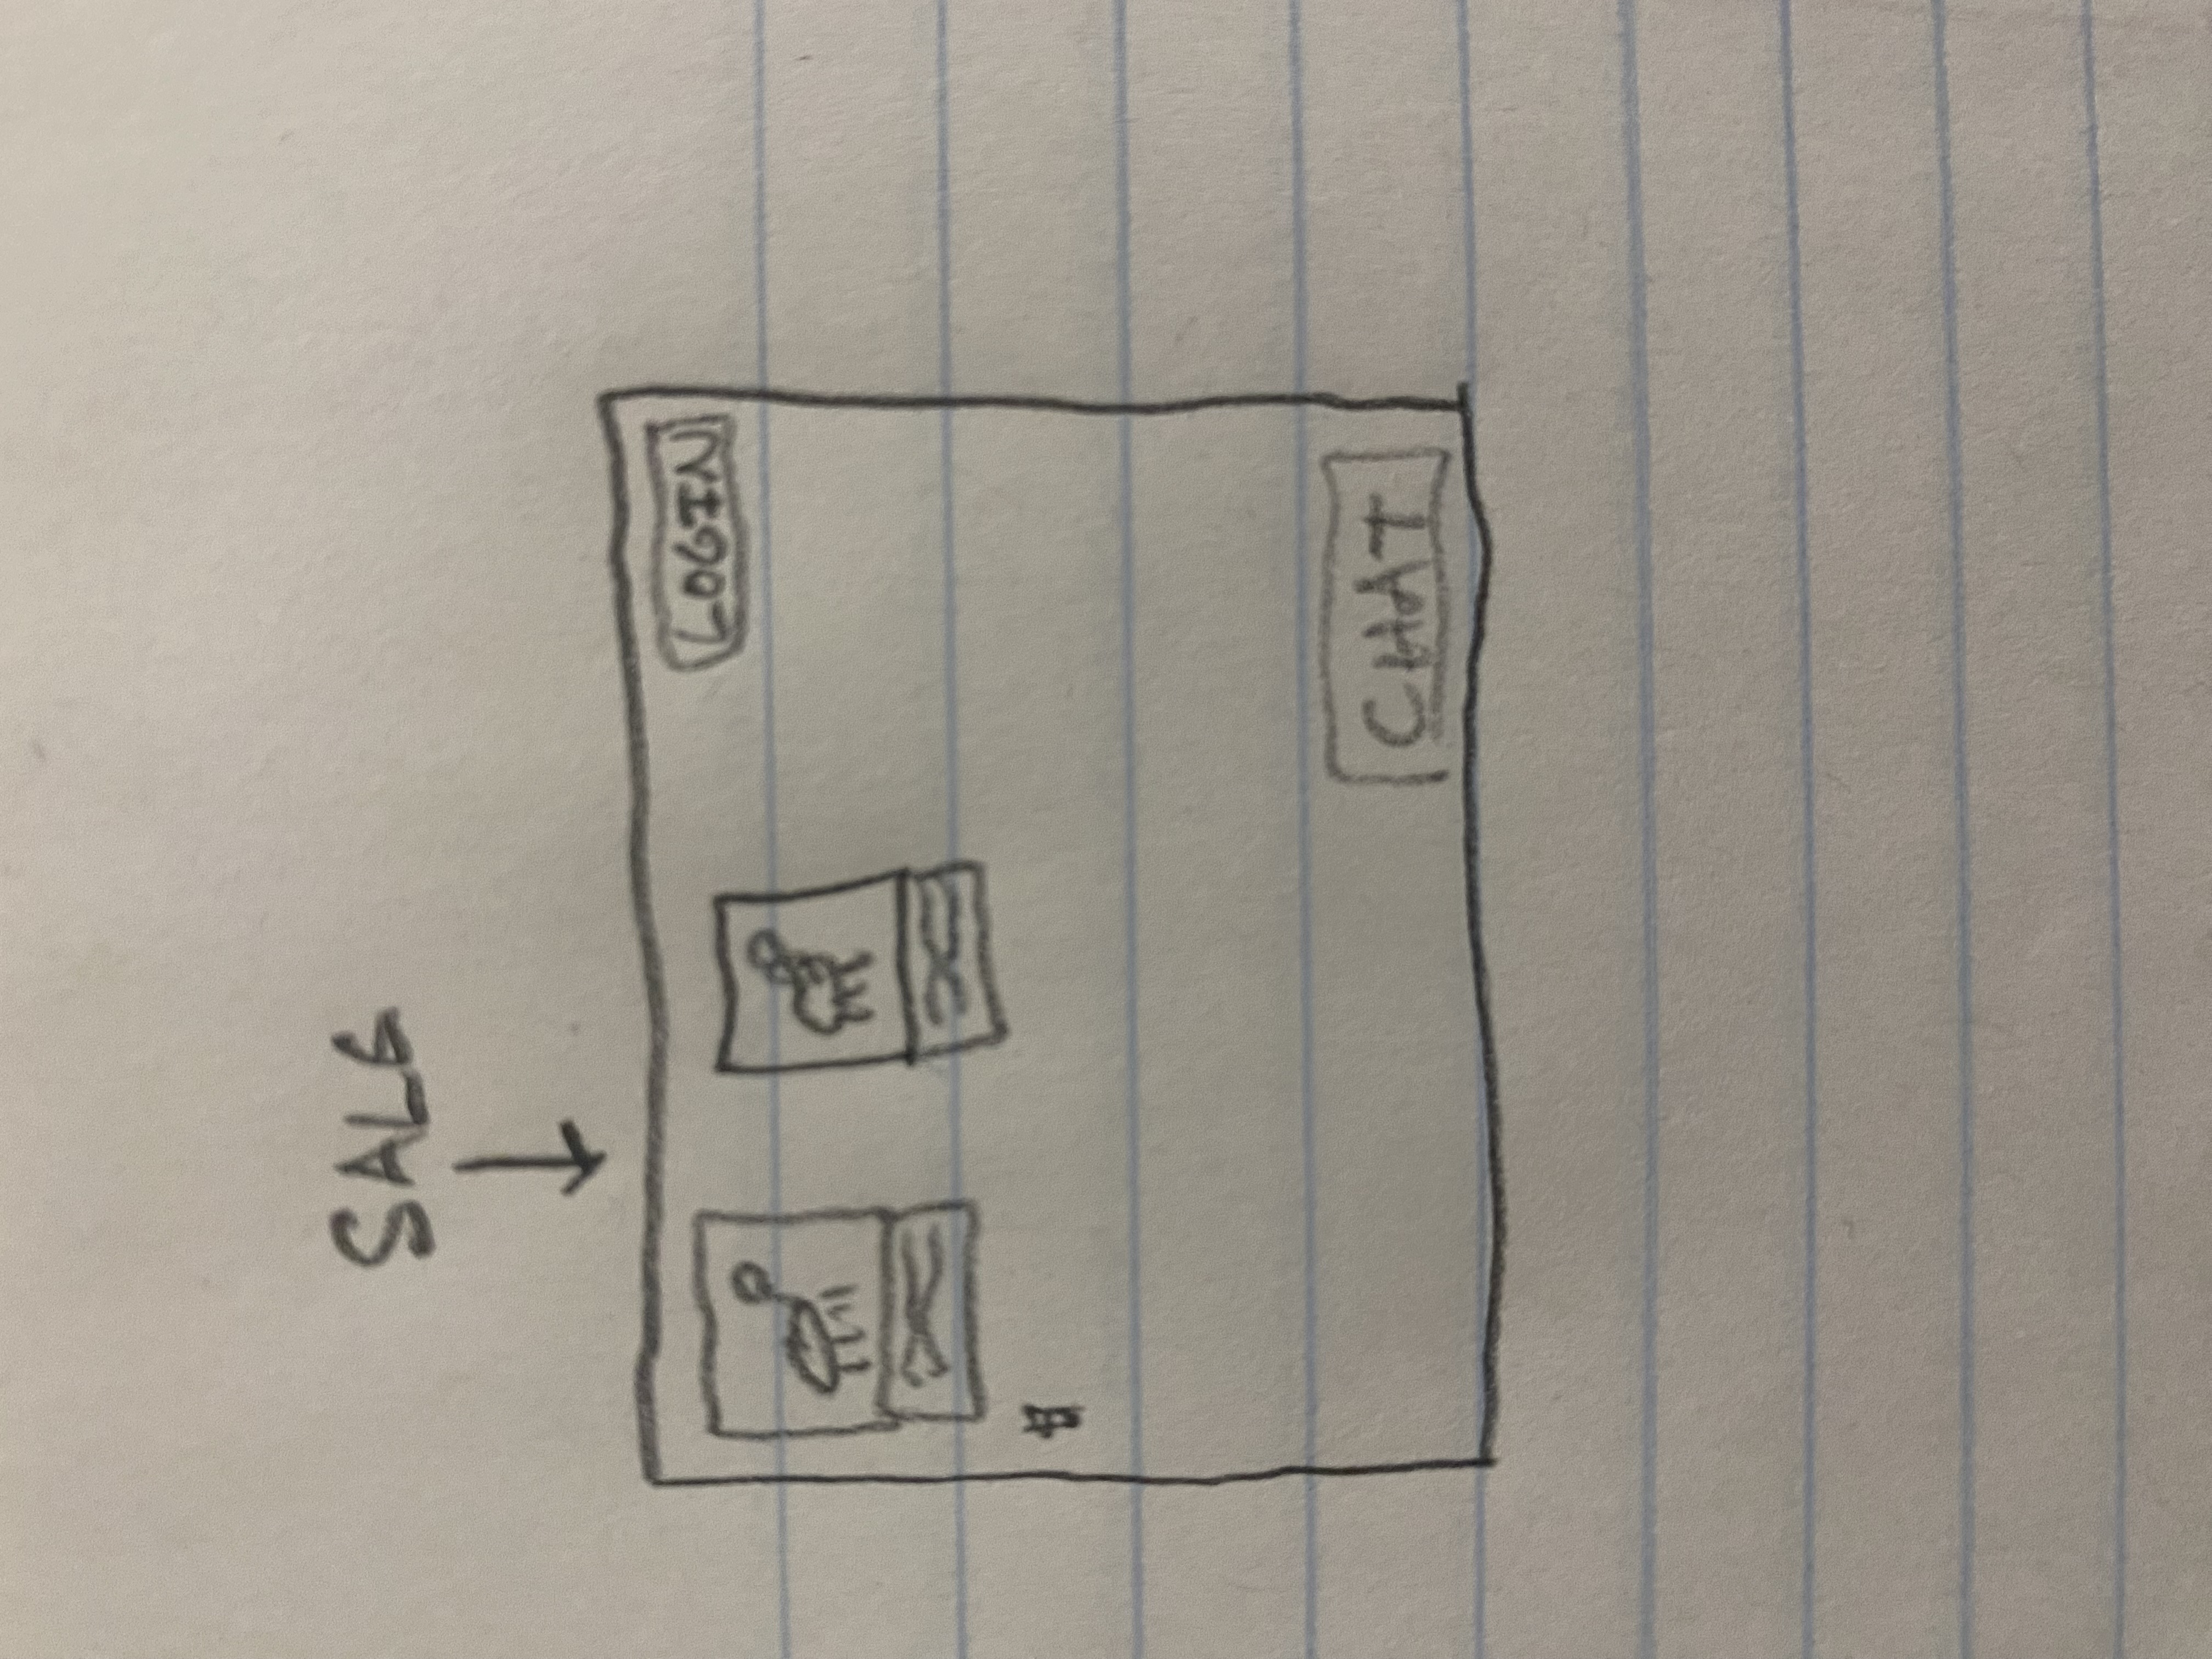 SALE
LOGIN
CHAT